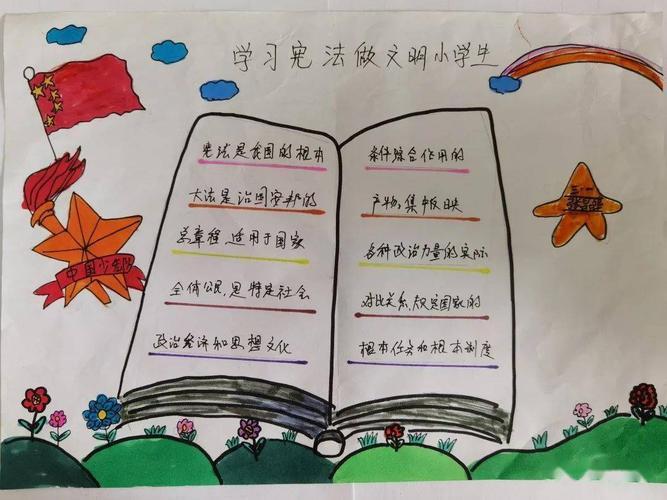 学习宪法做文明小学生
宪法是我国的根本
大法是治国安邦的
总章程,适用于国家
全体公民,思特定社会
政治经济和思想文化
条件综合作用的
产物,集中版映
各种政治力量的实际
对比关系,规定国家的
根本任务和根本制度
中国少年队